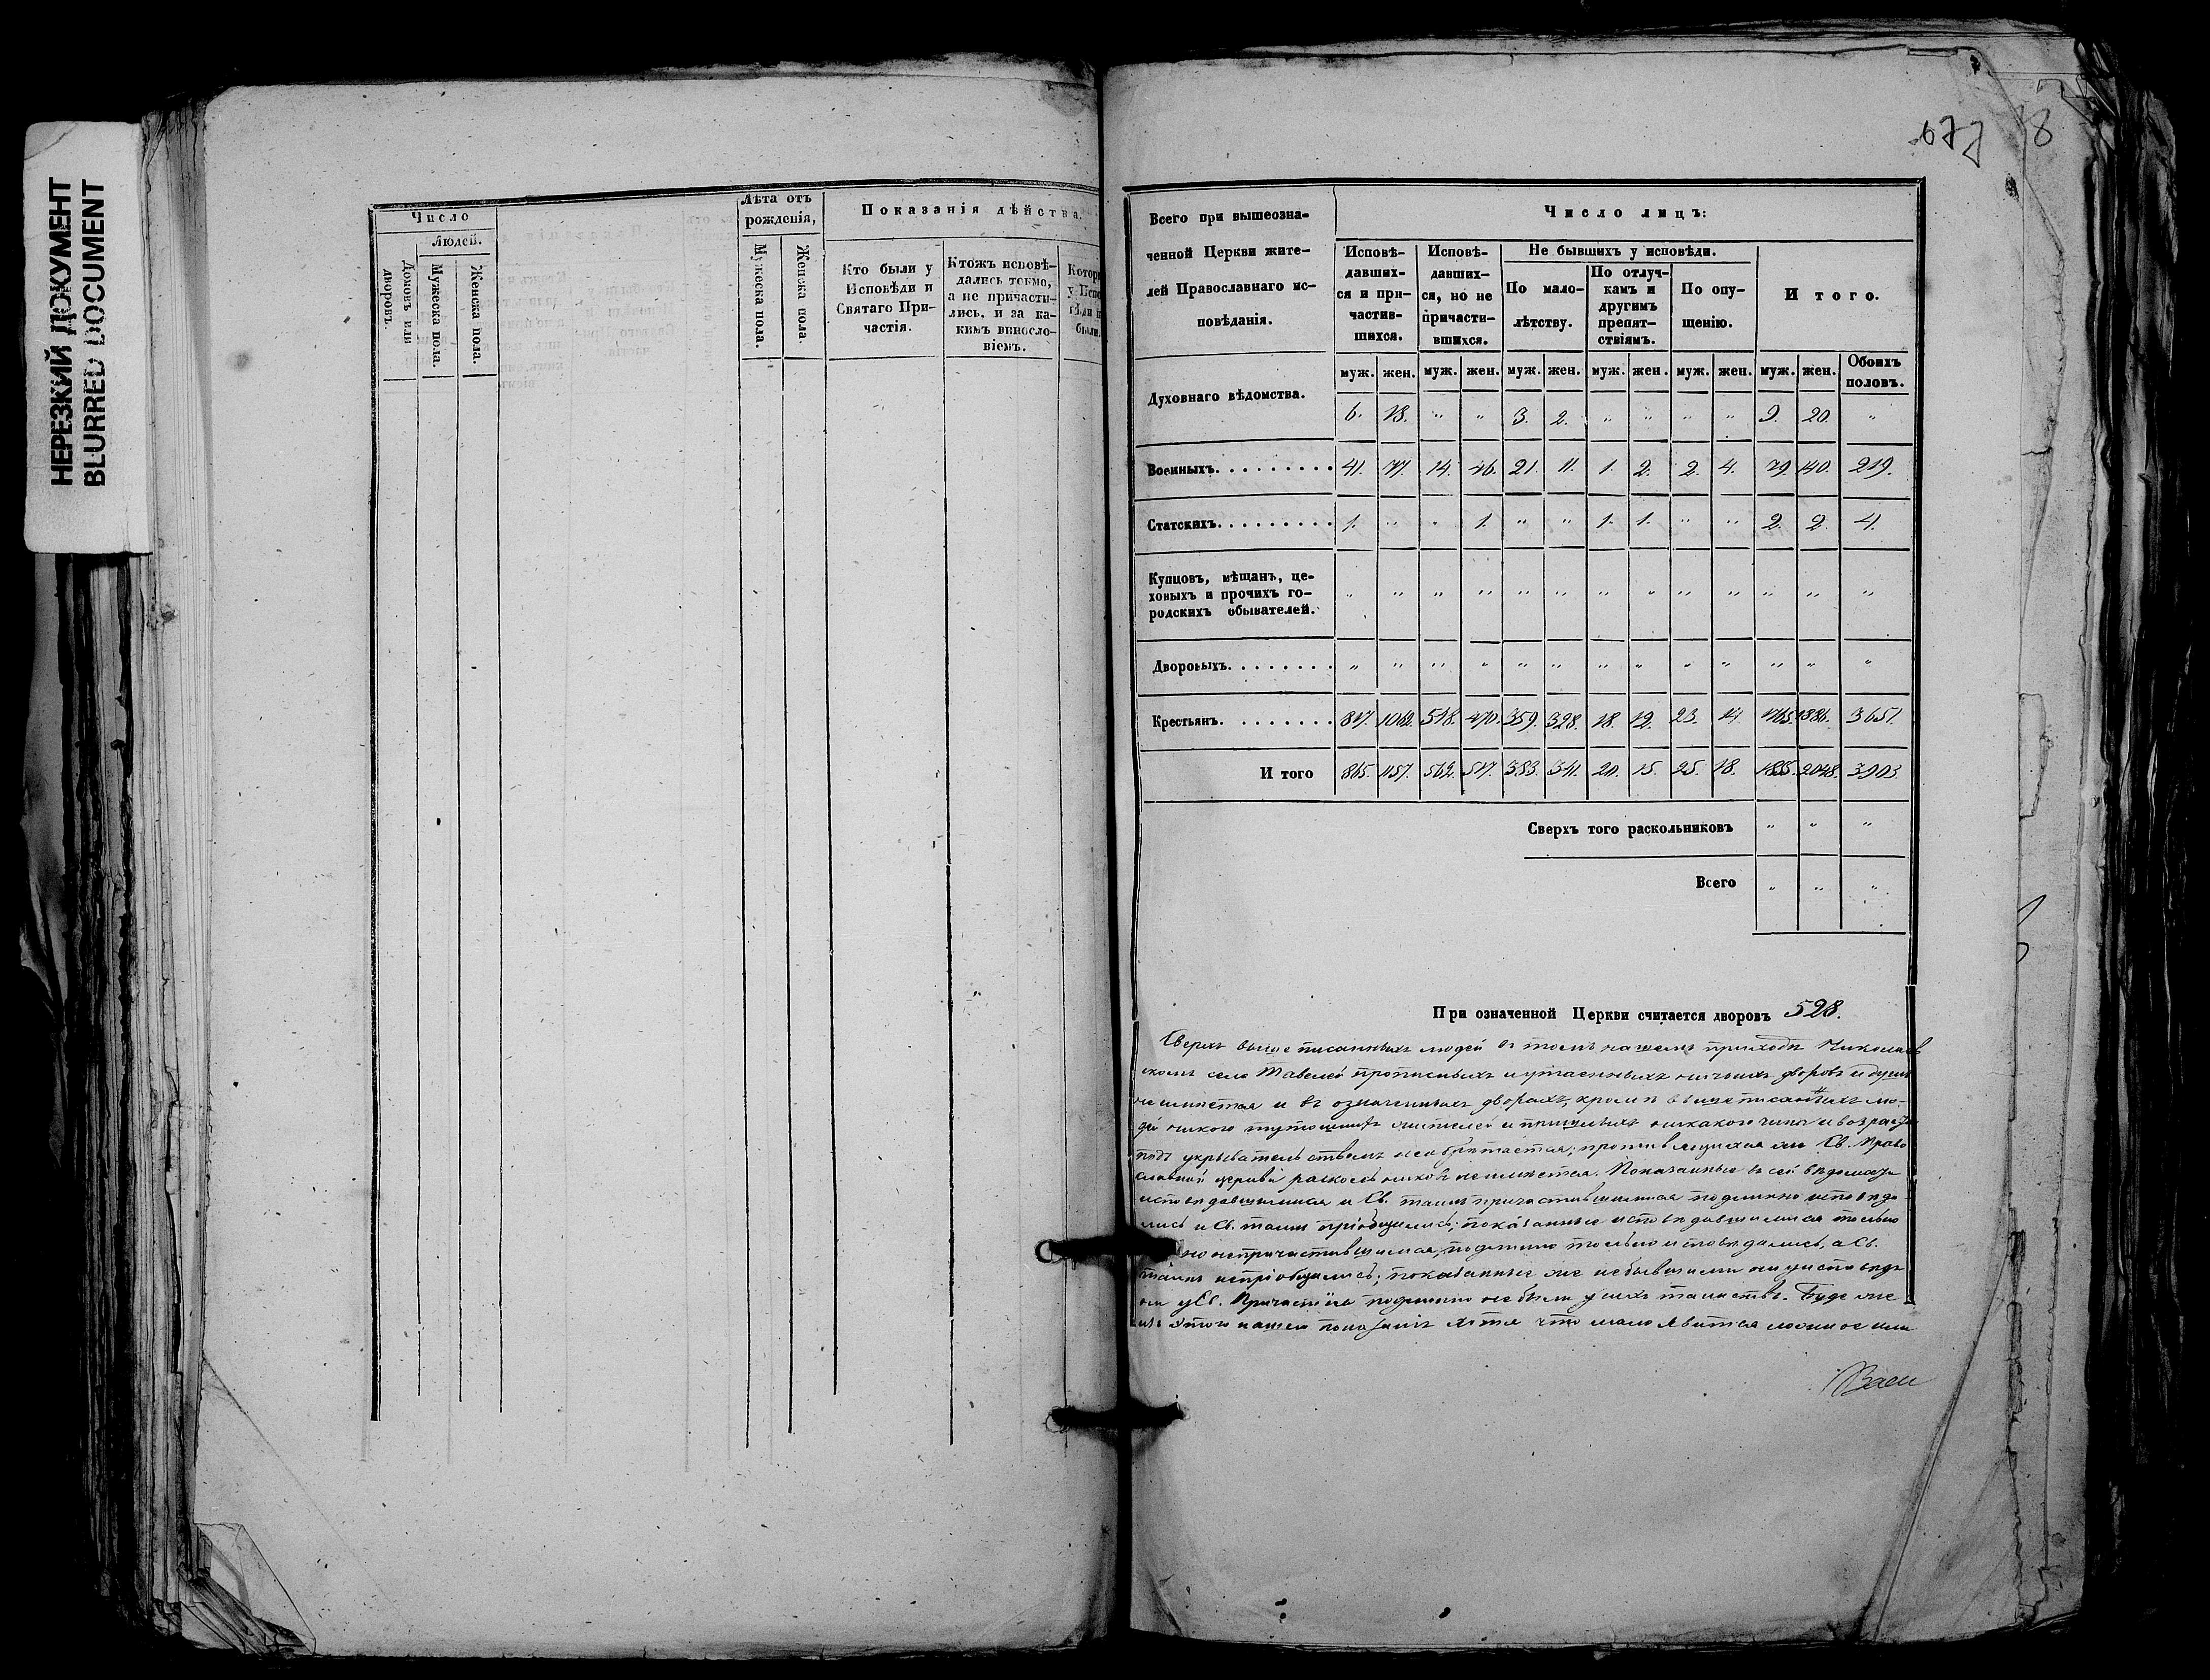 НЕРЕЗКИЙ ДОКУМЕНТ
BLURRED DOCUMENT
Число
Людей.
Домовъ или дворовъ.
Мужеска пола.
Женска пола.
Лѣта отъ рожденія,
Мужеска пола.
Женска пола.
Показанія дѣйства.
Кто были у Исповѣди и Святаго При-
частія.
Ктожъ исповѣ-
дались токмо,
а не причасти-
лись, и за ка-
кимъ винносло-
віемъ.
677
8
Всего при вышеозна-
ченной Церкви жите-
лей Православнаго ис-
повѣданія.
Число лицъ:
Исповѣ-
давших-
ся и при-
частив-
шихся.
Исповѣ-
давших-
ся, но не
причасти-
вшихся.
Не бывшихъ у исповѣди.
По мало-
лѣтству.
По отлуч-
камъ и
другимъ
препят-
ствіямъ.
По опу-
щенію.
Итого.
муж. жен. муж. жен. муж. жен. муж. жен. муж. жен. муж. жен. Обоихъ половъ.
Духовнаго вѣдомства. 6. 18. " " 3. 2. " " " " 9. 20. "
Военныхъ. 41. 77. 14. 46. 21. 11. 1. 2. 2. 4. 79. 140. 219.
Статскихъ. 1. " " 1. " " 1. 1. " " 2. 2. 4.
Купцовъ, мѣщанъ, це-
ховыхъ и прочихъ го-
родскихъ обывателей. " " " " " " " " " " " " "
Дворовыхъ. " " " " " " " " " " " " "
Крестьянъ. 817. 1062. 548. 470. 359. 328. 18. 12. 23. 14 1765. 1886. 3651.
И того 865. 1157. 562. 517. 383. 341. 20. 15. 25. 18. 1855. 2048. 3903
Сверхъ того раскольниковъ " " "
Всего " " "
При означенной Церкви считается дворовъ 528.
Сверхъ вышеписанныхъ людей въ томъ нашемъ приходѣ Николаев
скомъ селѣ прописныхъ и утаенныхъ ничьихъ дворовъ и душъ
не имѣется и въ означенныхъ дворахъ, кромѣ вышеписанныхъ лю-
дей никого жителей и пришлыхъ никакого чина и возраста
подъ укрывательствомъ не обрѣтается; противящихся же Св. Право
славной церкви раскольниковъ не имѣется. Показанные въ сей вѣдомости
исповѣдавшимися и Св. таинъ причастившимися подлинно исповѣда-
лись и Св. таинъ пріобщились; показанные исповѣдавшимися только
но не причастившимися, подлинно только исповѣдались, а Св.
таинъ не пріобщились; показанные же не бывшими ни у исповѣди
ни у Св. Причастія подлинно не были у сихъ таинствъ. Буде же
изъ этого нашего показанія хотя что мало явится ложное или
Васи